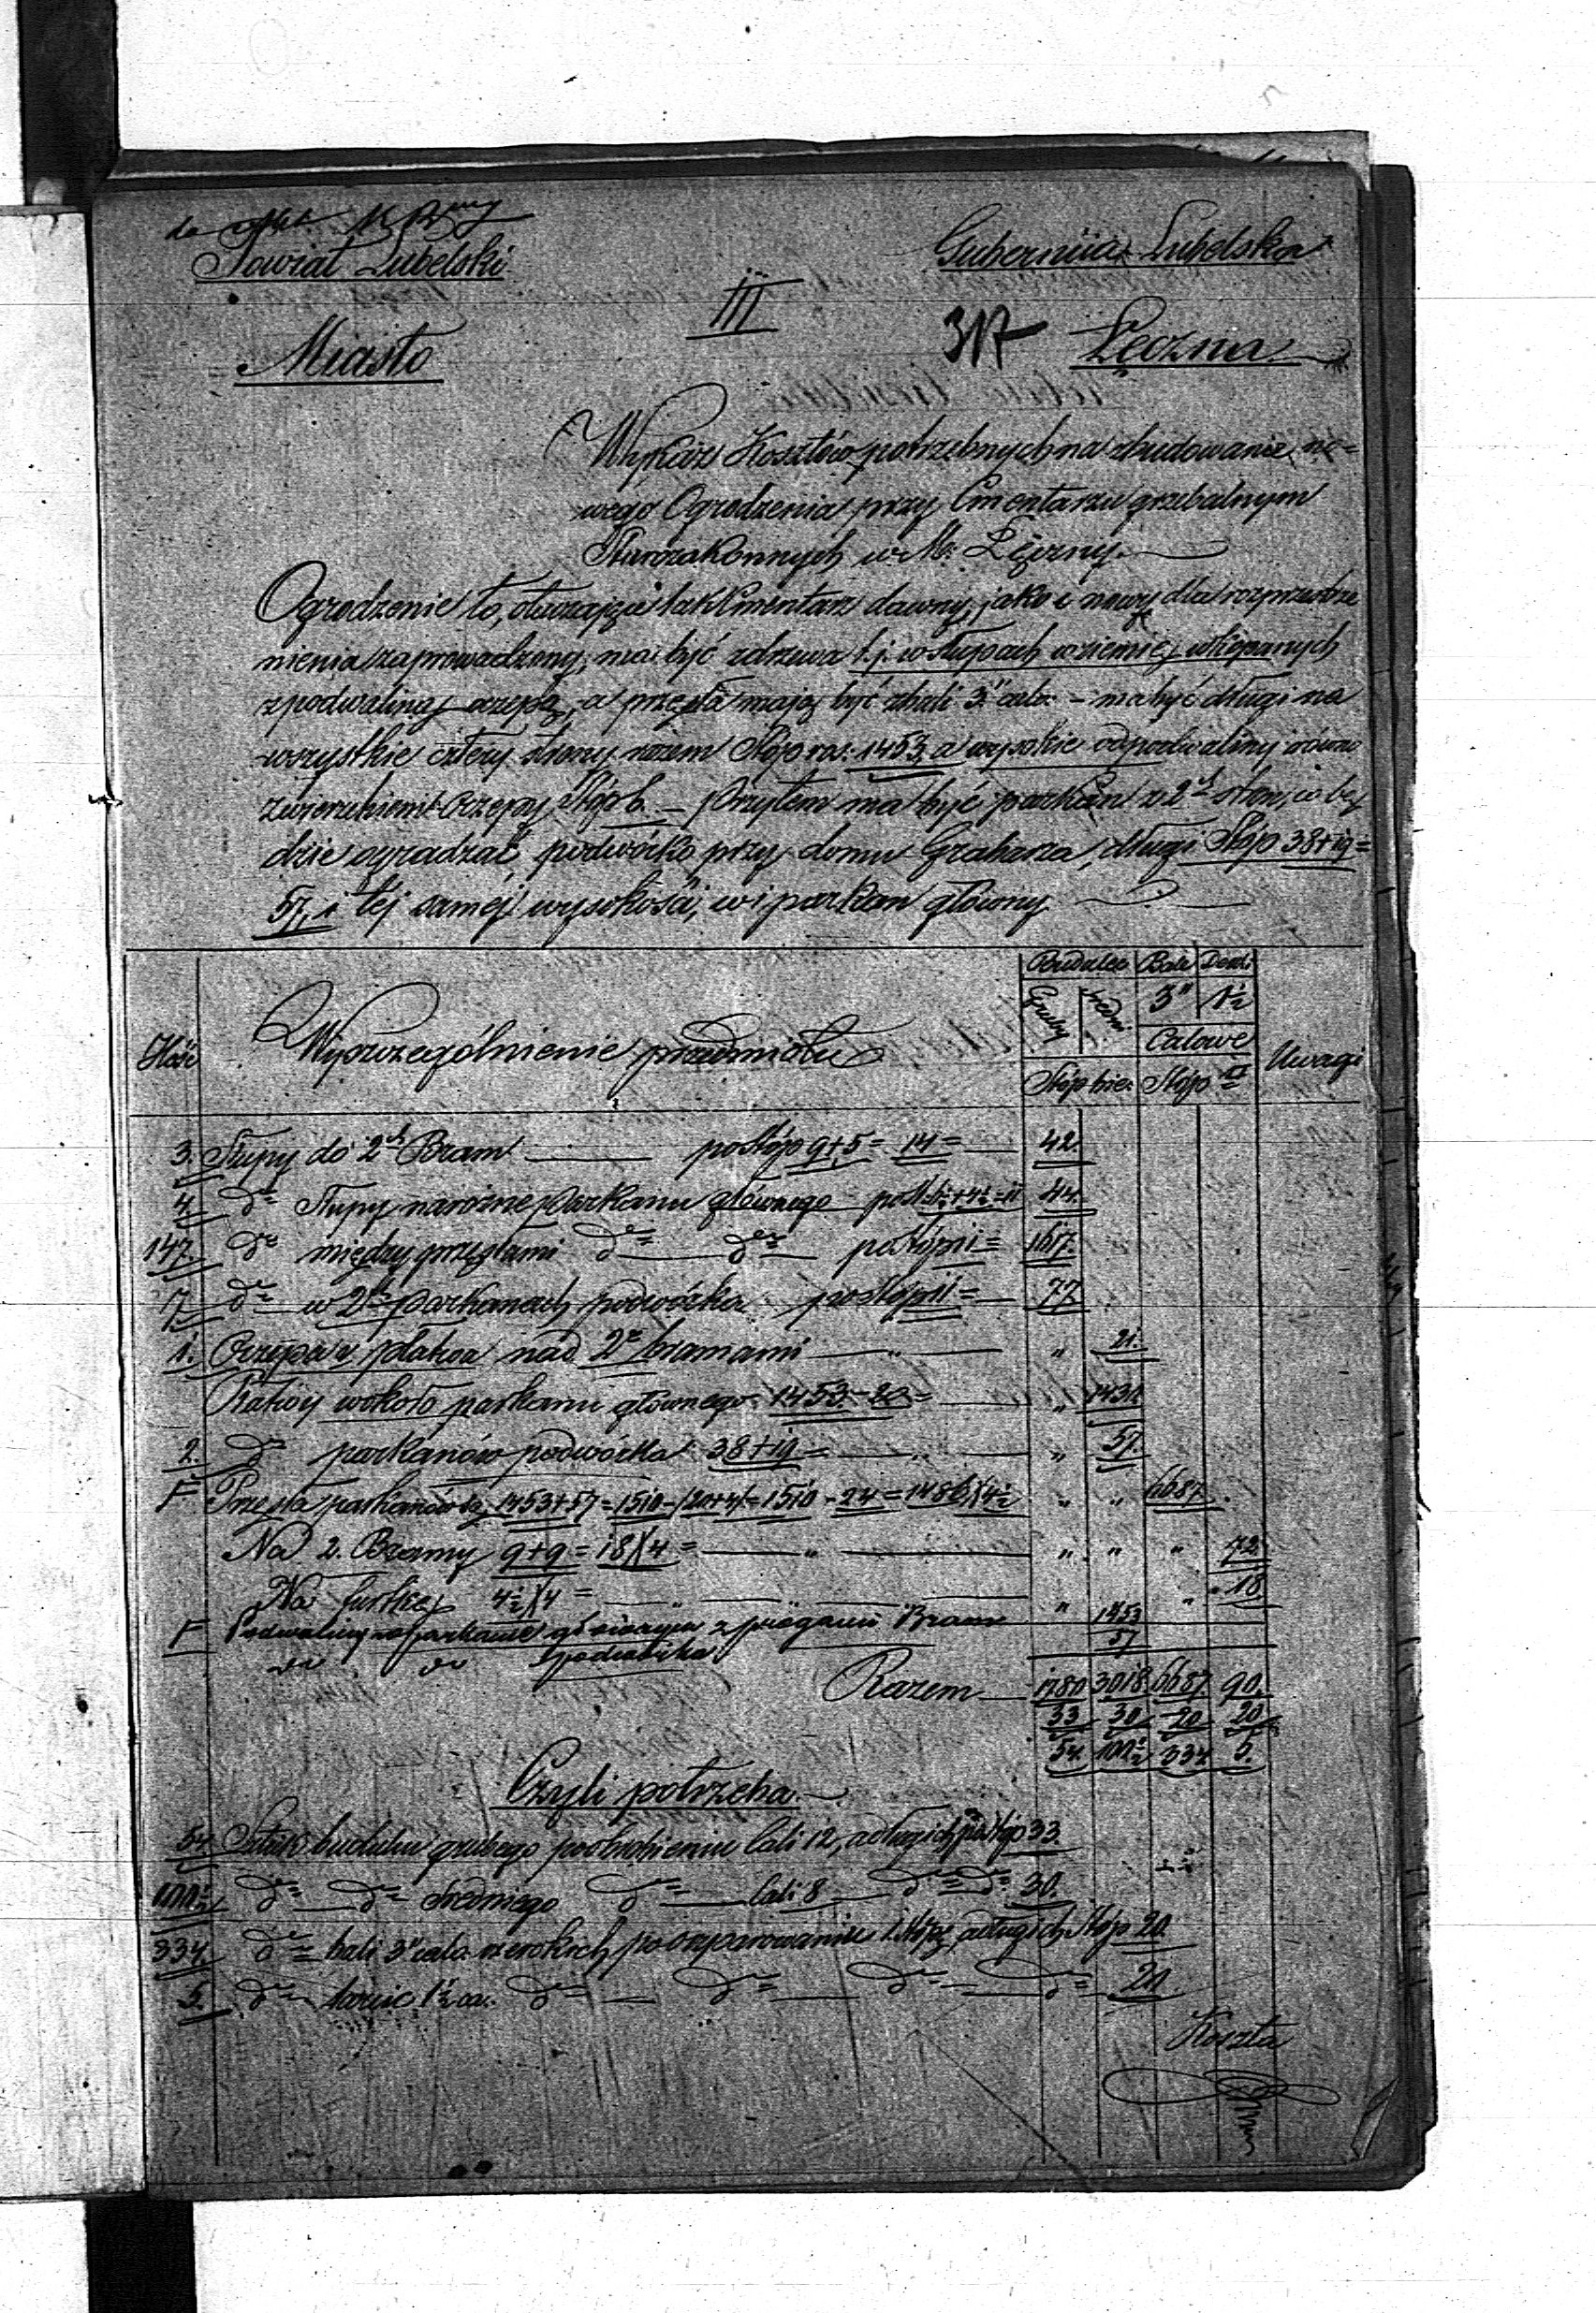 Powiat Lubelski
Gubernija Lubelska
III
317
Miasto
Łęczna
Wykaz Kosztów potrzebnych na zbudowanie no=
wego Ogrodzenia przy Cmentarzu grzebalnym
Starozakonnych w M. Łęczny.
Ogrodzenie to, otaczające tak Cmentarz dawny, jako i nowy dla rozprzestrze
nienia zaprowadzony, ma być zdrzewa t.j. w słupach w ziemię wkopanych
z podwaliną, oczepą, a przęsła mają być z bali 3" calo. – ma być długi na
wszystkie cztery strony razem Stóp 1453, a wysokie od podwaliny równo
zwierzchem Oczepy Stóp 6. – Przytem ma być parkan z 2ch stron, co bę
dzie ogradzać podwórko przy domu Grabarza, długi Stóp 38+19=
57, i tej samej wysokości, co i parkan główny.
Ilość
Wyszczególnienie przedmiotu
Budulec
Bale
Deski
Gruby
Średni
3"
1½
Calowe
Stóp bie:
Stóp □
Uwagi
3. Słupy do 2ch Bram — po Stóp 9+5=14= 42.
4. do Słupy narożne Parkanu głównego po St. 6½+4½=11 44.
147. do między przęsłami do do po Stóp 11= 1617.
7. do w 2ch parkanach podwórka po Stóp 11= 77.
1. Oczepa v. płatwa nad 2ma bramami — " — " 21.
Płatwy wokoło parkanu głównego 1453–20= " 1432
2. do parkanów podwórka 38+19= — " — " 57.
Przęsła parkanów są 1453+57=1510–(20+4)=1510–24=1486)(4½ " " 6687.
Na 2. Bramy 9+9=18)(4= — " — " " " 72
Na furtkę 4½)(4= " " 18.
Podwaliny w parkanie głównym z progami Bram 1453
do do podwórka 57
Razem 1780 3018 6687 90.
33 30 20 20
54. 100½ 334. 5.
Czyli potrzeba
54. Sztuk budulcu grubego po obrobieniu cali 12, a długich po Stóp 33.
100½ do do średniego do cali 8 do do 30.
334. do bali 3" calo. szerokich po oszparowaniu 1. Stopę, a długich Stóp 20.
5. do tarcic 1½ ca. do do do do 20
Koszta